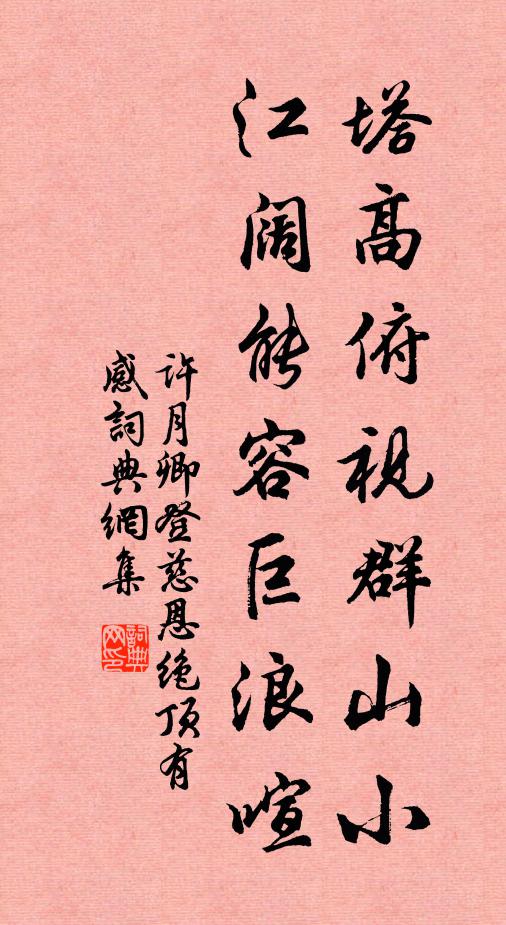 塔高俯視群山小
江阔能容巨浪喧
许月卿登慈恩绝顶有
感詞典網集
詞典网印